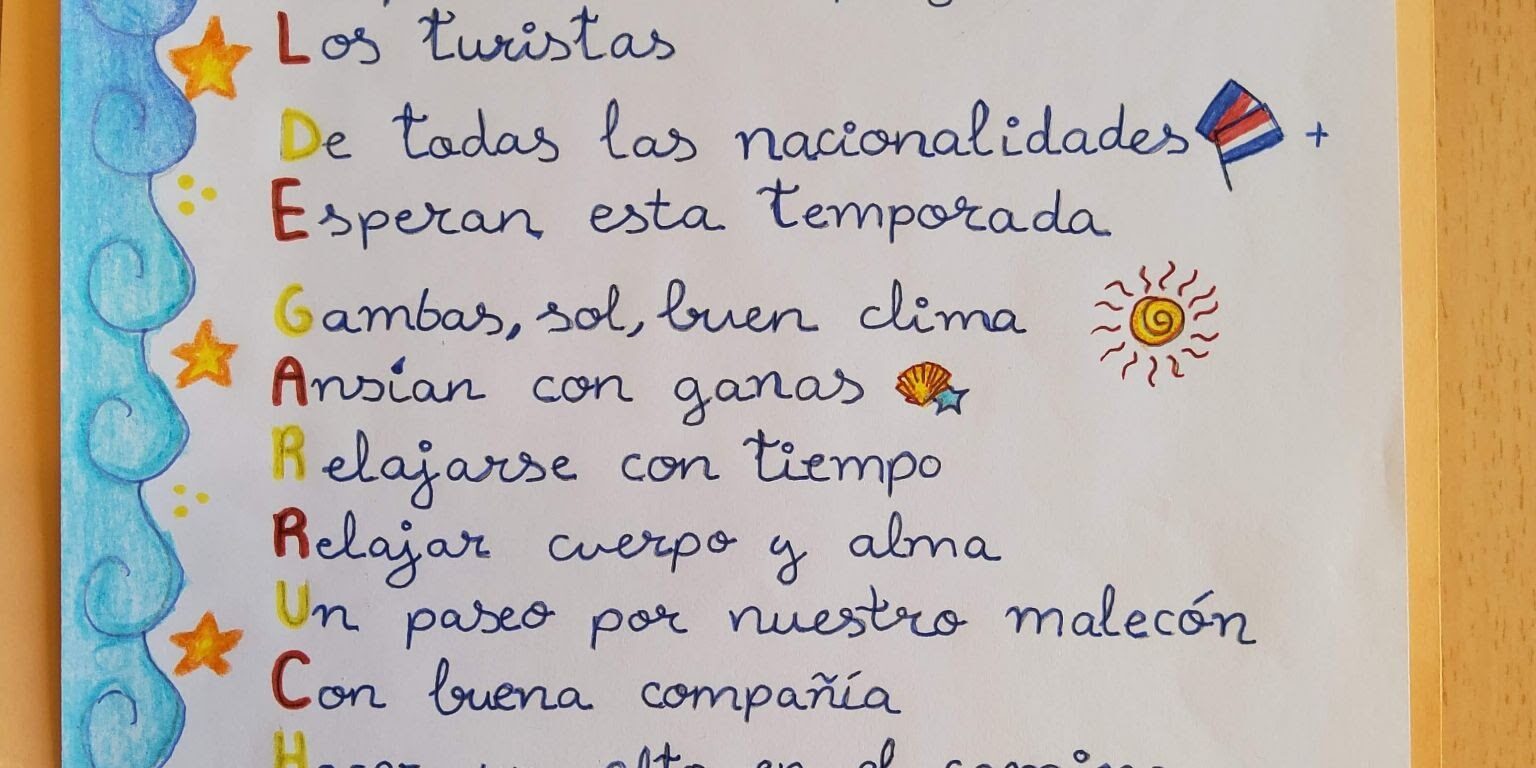 Los turistas
De todas las nacionalidades +
Esperan esta temporada
Gambas, sol, buen clima
Ansían con ganas
Relajarse con tiempo
Relajar cuerpo y alma
Un paseo por nuestro malecón
Con buena compañía
Hacer un alto en el camino